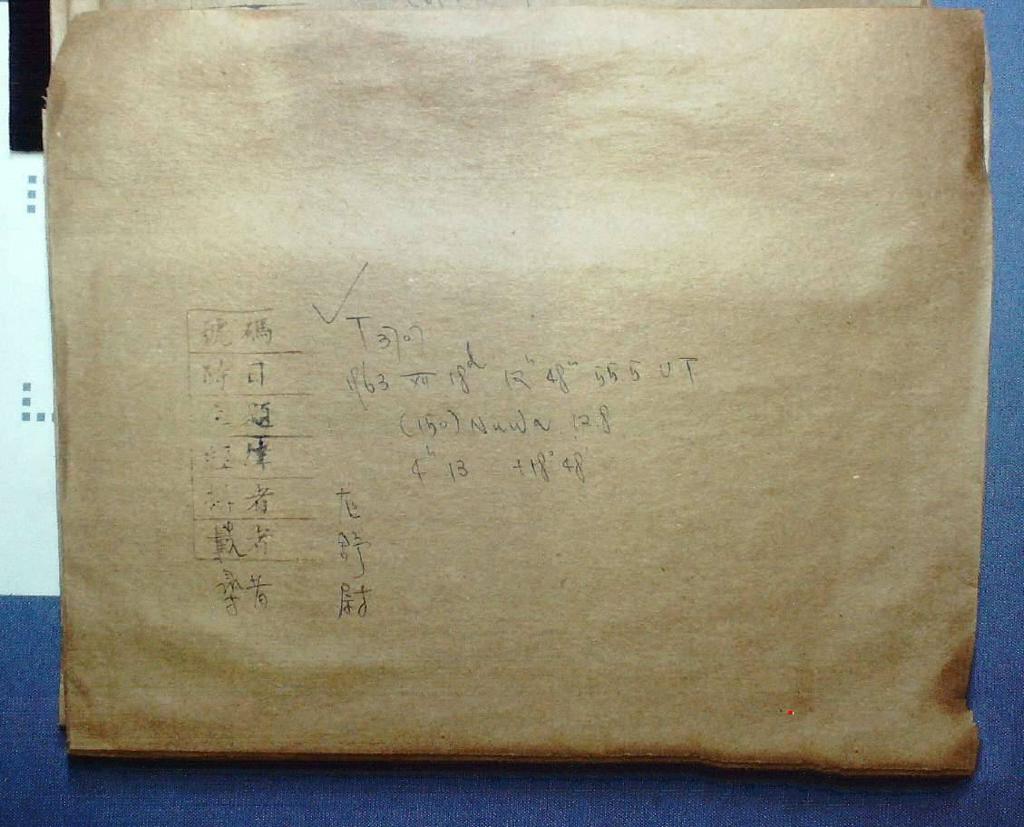 號碼 T 3707
時日 1963 XII 18ᵈ 12ʰ 48ᵐ 55.5 UT
(150) Nuwa 12.8
經緯 4ʰ 13 +18° 48'
者
者 舒
者 尉